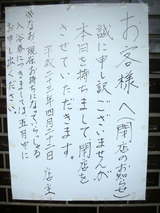 お客様へ(閉店のお知らせ)
誠に申し訳ございませんが
本日を持ちまして閉店を
させていただきます。
平成二十三年四月二十二日 店主
※なお現在お持ちになっていらっしゃる
入浴券につきましては五月中に
お申し出ください。